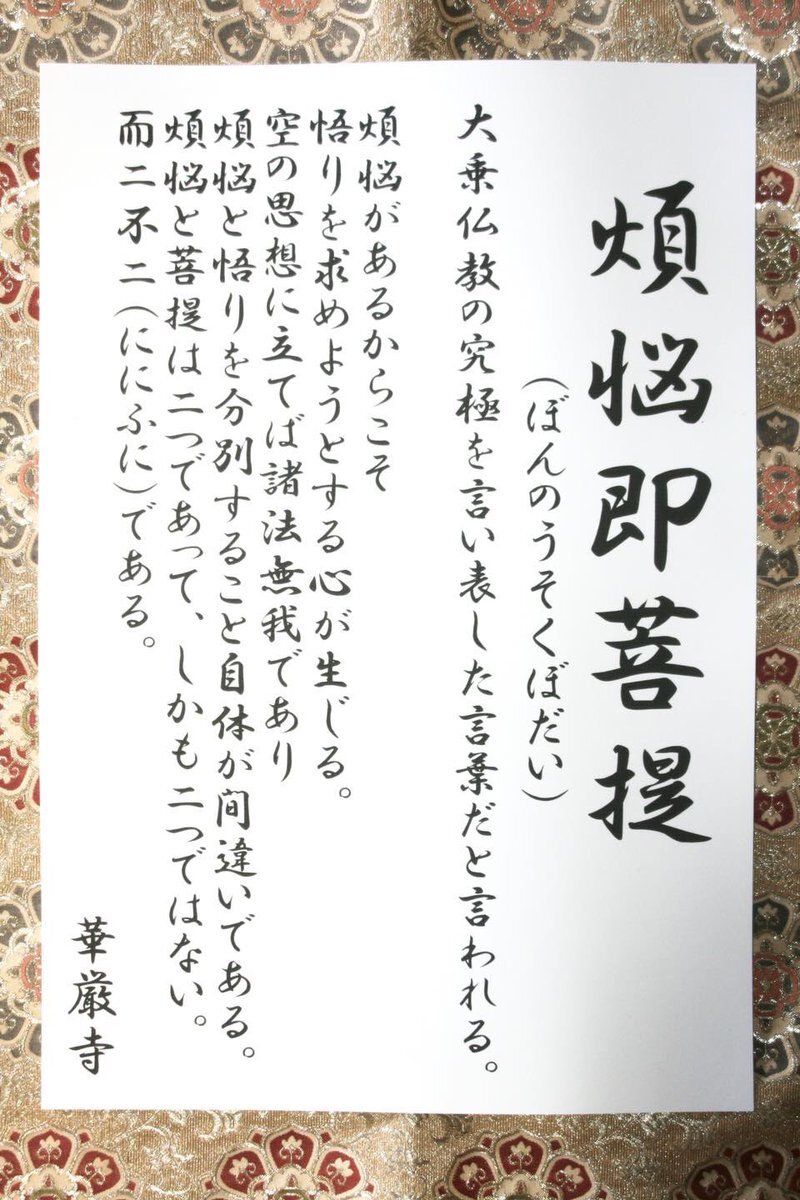 煩悩即菩提
(ぼんのうそくぼだい)
大乗仏教の究極を言い表した言葉だと言われる。
煩悩があるからこそ
悟りを求めようとする心が生じる。
空の思想に立てば諸法無我であり
煩悩と悟りを分別すること自体が間違いである。
煩悩と菩提は二つであって、しかも二つではない。
而二不二(ににふに)である。
華厳寺